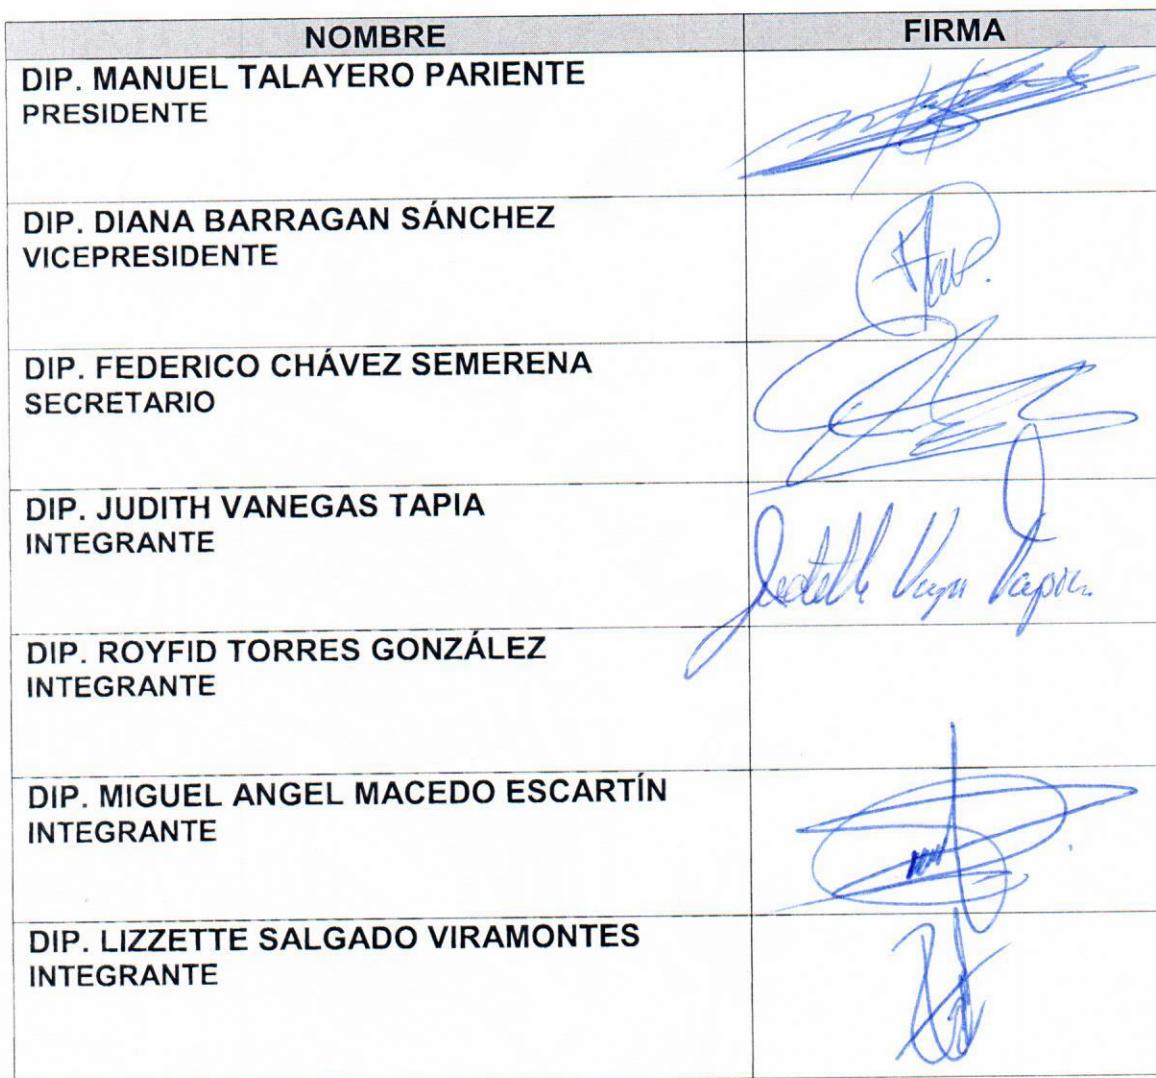 NOMBRE FIRMA
DIP. MANUEL TALAYERO PARIENTE
PRESIDENTE
DIP. DIANA BARRAGAN SÁNCHEZ
VICEPRESIDENTE
DIP. FEDERICO CHÁVEZ SEMERENA
SECRETARIO
DIP. JUDITH VANEGAS TAPIA
INTEGRANTE
DIP. ROYFID TORRES GONZÁLEZ
INTEGRANTE
DIP. MIGUEL ANGEL MACEDO ESCARTÍN
INTEGRANTE
DIP. LIZZETTE SALGADO VIRAMONTES
INTEGRANTE